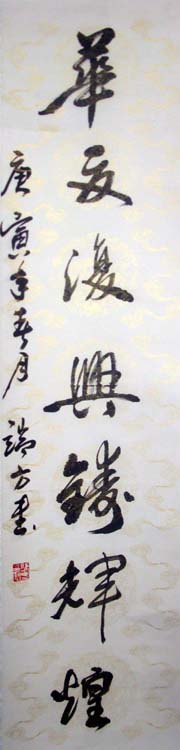 華夏復興鑄輝煌
庚寅年春月 端方書